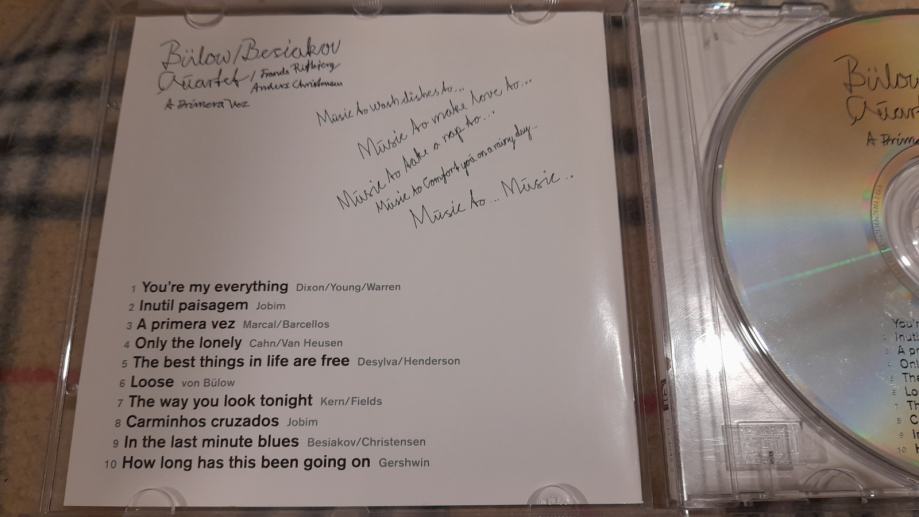 Bülow/Besiakov
Quartet/Frands Rifbjerg
Anders Christensen
A Primera Voz
Music to wash dishes to...
Music to make love to...
Music to take a nap to...
Music to comfort you on a rainy day...
Music to... Music...
1 You're my everything Dixon/Young/Warren
2 Inutil paisagem Jobim
3 A primera vez Marcal/Barcellos
4 Only the lonely Cahn/Van Heusen
5 The best things in life are free Desylva/Henderson
6 Loose von Bülow
7 The way you look tonight Kern/Fields
8 Carminhos cruzados Jobim
9 In the last minute blues Besiakov/Christensen
10 How long has this been going on Gershwin
Bülow
Quar
A Prim
You'r
Inuti
A pri
Onl
The
Lo
Th
C
In
10 H